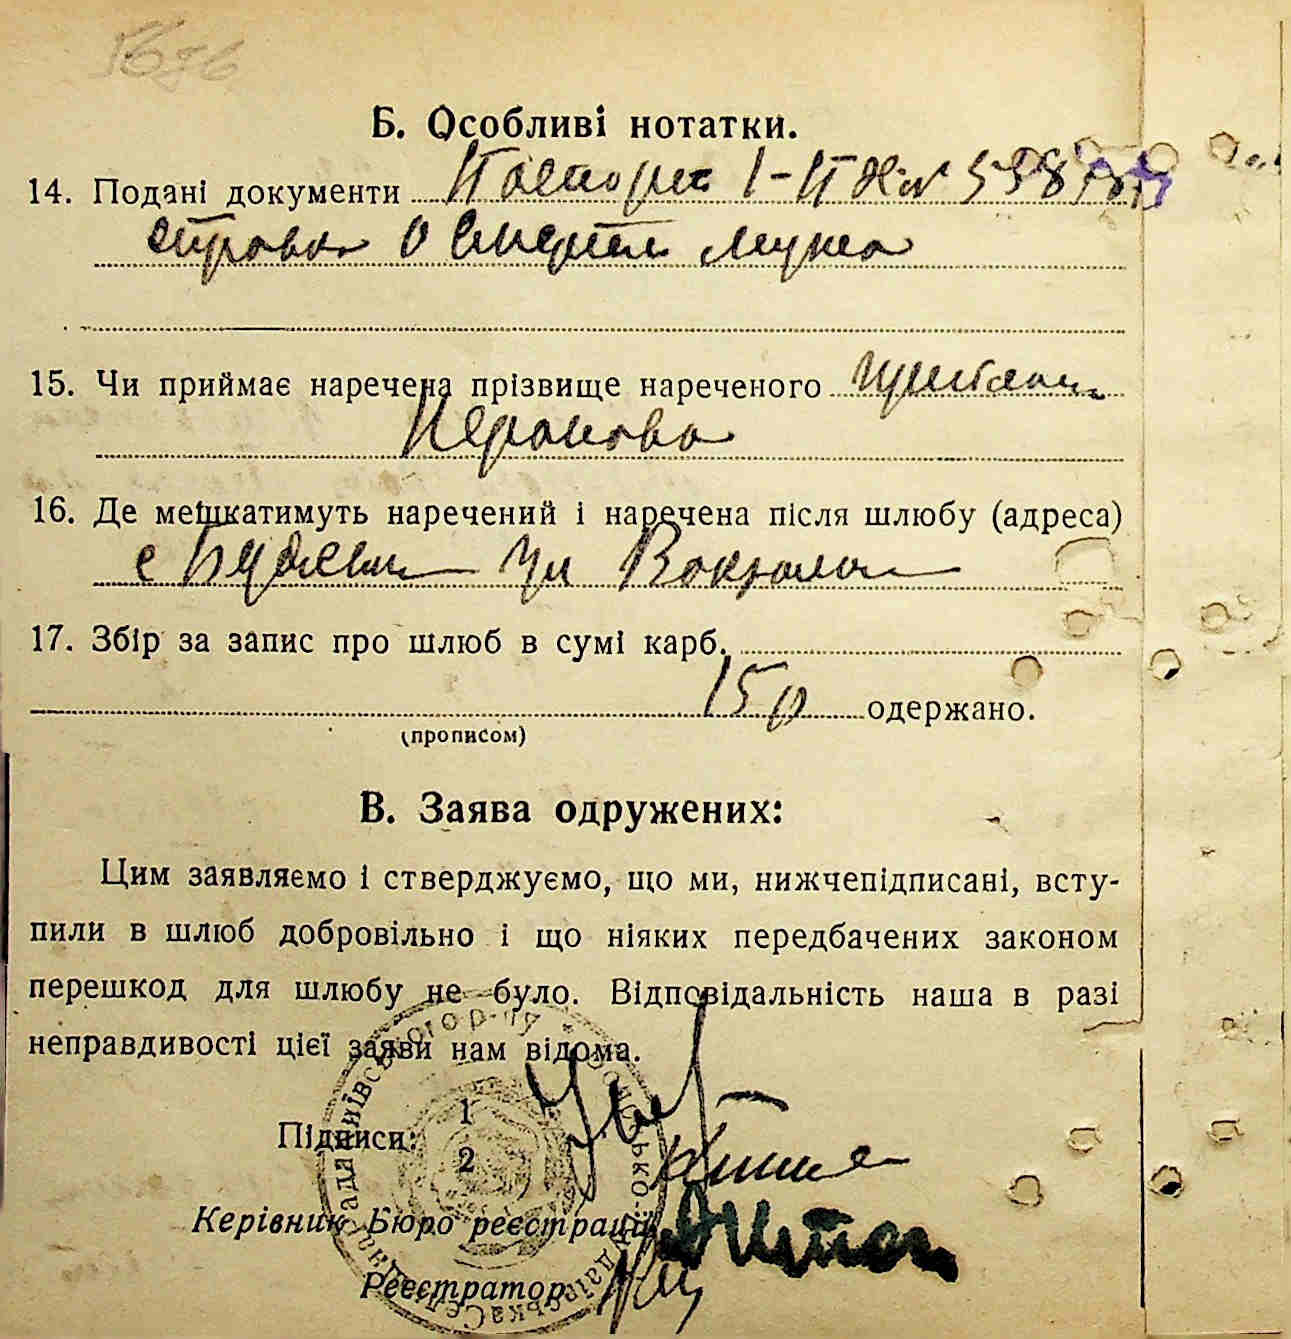 Б. Особливі нотатки.
14. Подані документи Паспорт
справка о смерти мужа
15. Чи приймає наречена прізвище нареченого
16. Де мешкатимуть наречений і наречена після шлюбу (адреса)
с ул Вокзал
17. Збір за запис про шлюб в сумі карб.
15 р одержано.
(прописом)
В. Заява одружених:
Цим заявляємо і стверджуємо, що ми, нижчепідписані, всту-
пили в шлюб добровільно і що ніяких передбачених законом
перешкод для шлюбу не було. Відповідальність наша в разі
неправдивості цієї заяви нам відома.
Підписи: 1
2
Керівник Бюро реєстрації
Реєстратор